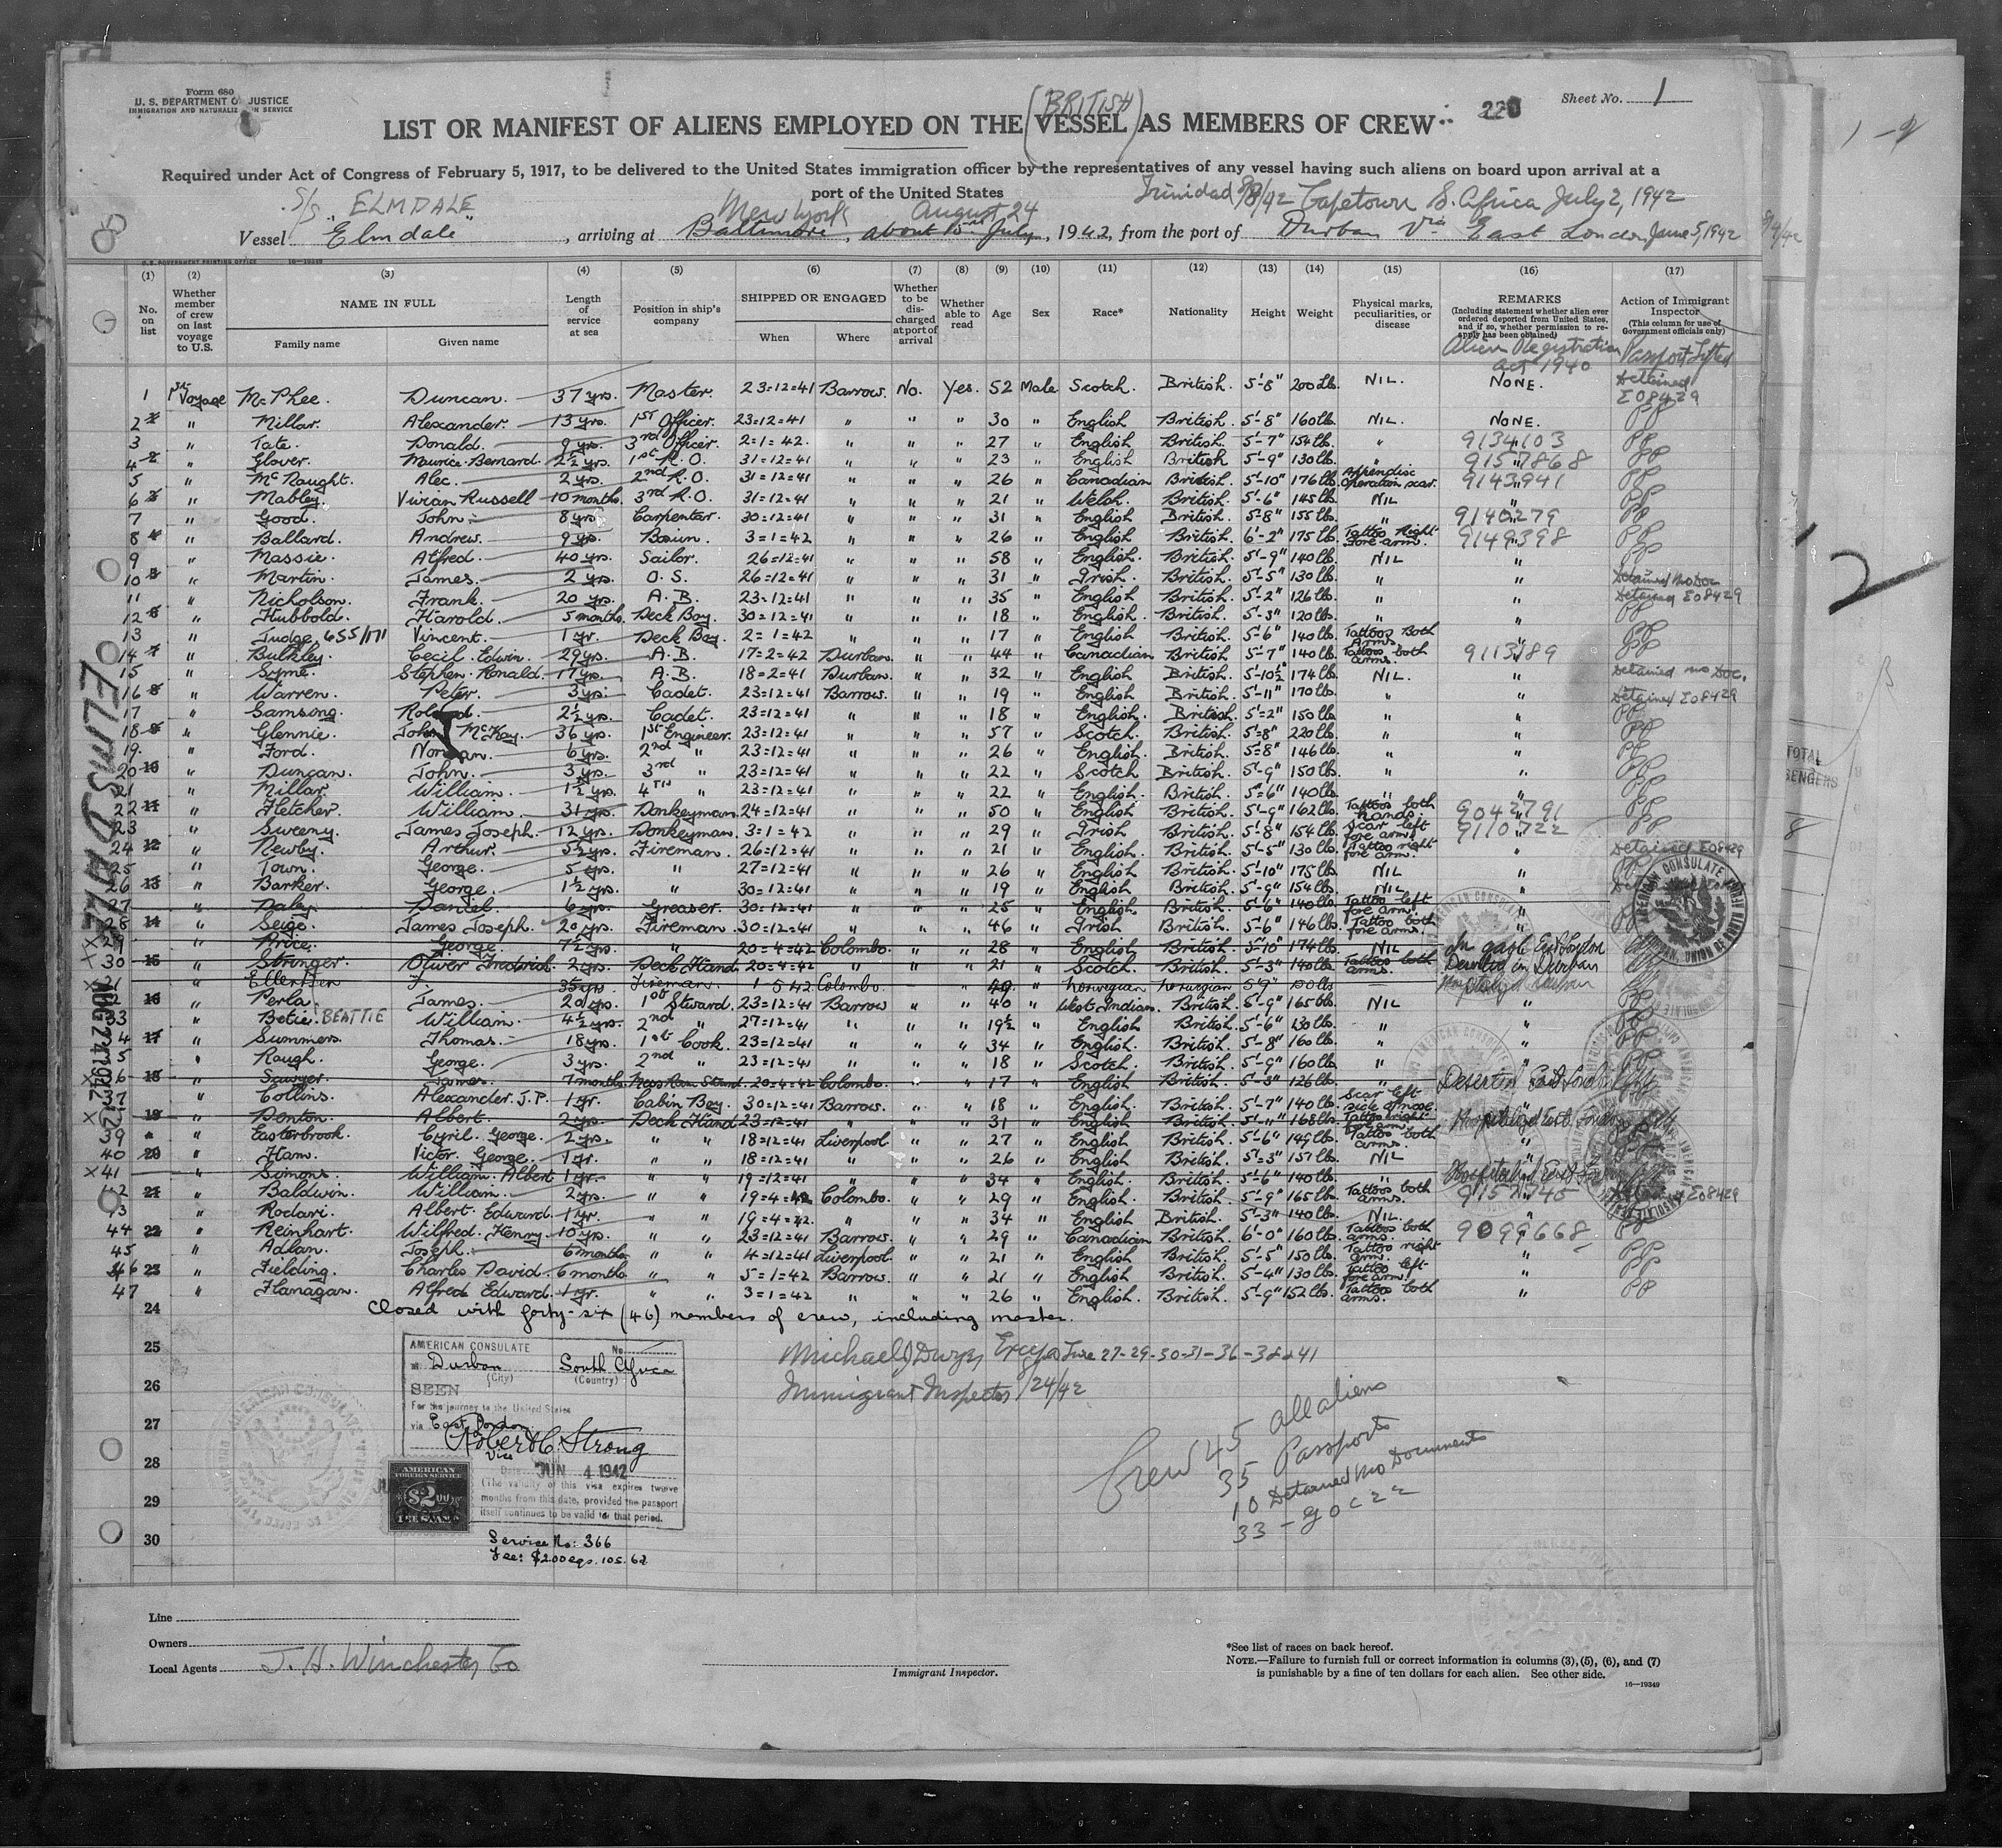 Form 680
U. S. DEPARTMENT OF JUSTICE
IMMIGRATION AND NATURALIZATION SERVICE
Sheet No. 1
220
(BRITISH)
LIST OR MANIFEST OF ALIENS EMPLOYED ON THE VESSEL AS MEMBERS OF CREW
Required under Act of Congress of February 5, 1917, to be delivered to the United States immigration officer by the representatives of any vessel having such aliens on board upon arrival at a
port of the United States
S/S ELMDALE New York August 24 Trinidad Capetown S. Africa July 2, 1942
Vessel "Elmdale", arriving at Baltimore, about July, 1942, from the port of Durban Via East London June 5, 1942
(1) (2) (3) (4) (5) (6) (7) (8) (9) (10) (11) (12) (13) (14) (15) (16) (17)
No. on list
Whether member of crew on last voyage to U.S.
NAME IN FULL
Family name Given name
Length of service at sea
Position in ship's company
SHIPPED OR ENGAGED
When Where
Whether to be discharged at port of arrival
Whether able to read
Age
Sex
Race*
Nationality
Height
Weight
Physical marks, peculiarities, or disease
REMARKS
(Including statement whether alien ever ordered deported from United States, and if so, whether permission to reapply has been obtained)
Alien Registration Act 1940
Action of Immigrant Inspector
(This column for use of Government officials only)
Passport Lifted
1 1st Voyage McPhee. Duncan. 37 yrs. Master. 23=12=41 Barrow. No. Yes. 52 Male Scotch. British. 5'-8" 200 Lb. NIL. NONE. Detained E08429
2 " Millar. Alexander. 13 yrs. 1st Officer. 23=12=41 " " " 30 " English British. 5'-8" 160 lb. NIL. NONE. PP
3 " Tate. Donald. 9 yrs. 3rd Officer. 2=1=42. " " " 27 " English British. 5'-7" 154 lb. " 9134103 PP
4 " Glover. Maurice Bernard. 2½ yrs. 1st R.O. 31=12=41 " " " 23 " English British 5'-9" 130 lb. " 9157868 PP
5 " McNaught. Alec. 2 yrs. 2nd R.O. 31=12=41 " " " 26 " Canadian British. 5'-10" 176 lb. Appendisc operation scar. 9143941 PP
6 " Mabley. Vivian Russell 10 months. 3rd R.O. 31=12=41 " " " 21 " Welsh. British. 5'-6" 145 lb. NIL " PP
7 " Good. John. 8 yrs. Carpenter. 30=12=41 " " " 31 " English British. 5'-8" 155 lb. " 9140279 PP
8 " Ballard. Andrew. 9 yrs. Bosun. 3=1=42 " " " 26 " English British. 6'-2" 175 lb. Tattoo Right fore arm. 9149398 PP
9 " Massie. Alfred. 40 yrs. Sailor. 26=12=41 " " " 58 " English. British. 5'-9" 140 lb. NIL " PP
10 " Martin. James. 2 yrs. O.S. 26=12=41 " " " 31 " Irish. British. 5'-5" 130 lb. " " Detained No Doc
11 " Nicholson. Frank. 20 yrs. A.B. 23=12=41 " " " 35 " English British. 5'-2" 126 lb. " " Detained E08429
12 " Hubbold. Harold. 5 months. Deck Boy. 30=12=41 " " " 18 " English. British. 5'-3" 120 lb. " " PP
13 " Judge. 655/171 Vincent. 1 yr. Deck Boy. 2=1=42 " " " 17 " English British. 5'-6" 140 lb. Tattoos Both Arms. " PP
14 " Bulkley. Cecil Edwin. 29 yrs. A.B. 17=2=42 Durban. " " 44 " Canadian British. 5'-7" 140 lb. Tattoos both arms. 9113789 PP
15 " Syme. Stephen Ronald. 17 yrs. A.B. 18=2=41 Durban. " " 32 " English British. 5'-10½" 174 lb. NIL. " Detained No Doc.
16 " Warren. Peter. 3 yrs. Cadet. 23=12=41 Barrow. " " 19 " English British. 5'-11" 170 lb. " " Detained E08429
17 " Samsong. Roland. 2½ yrs. Cadet. 23=12=41 " " " 18 " English. British. 5'=2" 150 lb. " " PP
18 " Glennie. John McKay. 36 yrs. 1st Engineer. 23=12=41 " " " 57 " Scotch. British. 5'=8" 220 lb. " " PP
19. " Ford. Norman. 6 yrs. 2nd " 23=12=41 " " " 26 " English. British. 5'=8" 146 lb. " " PP
20 " Duncan. John. 3 yrs. 3rd " 23=12=41 " " " 22 " Scotch British. 5'-9" 150 lb. " " PP
21 " Millar. William. 1½ yrs. 4th " 23=12=41 " " " 22 " English. British. 5'=6" 140 lb. " " PP
22 " Fletcher. William. 31 yrs. Donkeyman. 24=12=41 " " " 50 " English British. 5'-9" 162 lb. Tattoos both hands. 9042791 PP
23 " Sweeny. James Joseph. 12 yrs. Donkeyman. 3=1=42 " " " 29 " Irish British. 5'-8" 154 lb. Scar left fore arm. 9110722 PP
24 " Newby. Arthur. 5½ yrs. Fireman. 26=12=41 " " " 21 " English. British. 5'-5" 130 lb. Tattoo right fore arm. " Detained E08429
25 " Town. George. 5 yrs. " 27=12=41 " " " 26 " English British. 5'-10" 175 lb. NIL " PP
26 " Barker. George. 1½ yrs. " 30=12=41 " " " 19 " English British. 5'-9" 154 lb. NIL "
27 " Daley Daniel. 6 yrs. Greaser. 30=12=41 " " " 25 " English. British. 5'-6" 140 lb. Tattoo left fore arm. "
28 " Seige. James Joseph. 20 yrs. Fireman. 30=12=41 " " " 46 " Irish British. 5'-6" 146 lb. Tattoo both fore arms. " PP
X 29 " Price. George. 7½ yrs. " 20=4=42 Colombo. " " 28 " English British. 5'-10" 174 lb. NIL In gaol East London
X 30 " Stringer. Oliver Fredrick. 2 yrs. Deck Hand 20=4=42 " " " 21 " Scotch. British. 5'-3" 140 lb. Tattoos both arms. Deserted in Durban
" 35 yrs. Fireman. 1 5 42 Colombo. " 49 " Norwegian Norwegian 5'9"
" Perla. James. 20 yrs. 1st Steward. 23=12=41 Barrow " " 40 " West Indian. British. 5'-9" 165 lb. NIL " PP
33 " Betie. BEATTIE William. 4½ yrs. 2nd " 27=12=41 " " " 19½ " English British. 5'-6" 130 lb. " " PP
4 " Summers. Thomas. 18 yrs. 1st Cook. 23=12=41 " " " 34 " English. British. 5'-8" 160 lb. " " PP
5 " Rough. George. 3 yrs. 2nd " 23=12=41 " " " 18 " Scotch British. 5'-9" 160 lb. " " PP
X 36 " Sawyer. James. 7 months. Mess Rm Stwrd. 20=4=42 Colombo. " " 17 " English British. 5'-3" 126 lb. " Deserted East London
37 " Collins. Alexander J.P. 1 yr. Cabin Boy. 30=12=41 Barrow. " " 18 " English. British. 5'-7" 140 lb. Scar left side of nose. "
X " Denton. Albert. 2 yrs. Deck Hand 23=12=41 " " " 31 " English. British. 5'-11" 168 lb. Tattoo right fore arm. Hospitalized East London
39 " Easterbrook. Cyril George. 2 yrs. " " 18=12=41 Liverpool. " " 27 " English British. 5'-6" 149 lb. Tattoo both arms. "
40 " Hams. Victor George. 1 yr. " " 18=12=41 " " " 26 " English British. 5'=3" 157 lb. NIL "
X 41 " Simons. William Albert 1 yr. " " 19=12=41 " " " 34 " English British. 5'-6" 140 lb. " Hospitalized East London
42 " Baldwin. William. 2 yrs. " " 19=4=42 Colombo. " " 29 " English. British. 5'-9" 165 lb. Tattoos both arms. 9157745 Detained E08429
3 " Rodari. Albert Edward. 1 yr. " " 19=4=42. " " " 34 " English British. 5'-3" 140 lb. NIL. "
44 " Reinhart. Wilfred Henry. 10 yrs. " " 23=12=41 Barrow. " " 29 " Canadian British. 6'-0" 160 lb. Tattoo both arms. 9099668 PP
45 " Adlan. Joseph. 6 months " " 4=12=41 Liverpool. " " 21 " English British. 5'-5" 150 lb. Tattoo right arm. " PP
46 " Fielding. Charles David. 6 months. " " 5=1=42 Barrow. " " 21 " English British. 5'-4" 130 lb. Tattoo left fore arm. " PP
47 " Flanagan. Alfred Edward. 1 yr. " " 3=1=42 " " " 26 " English. British. 5'-9" 152 lb. Tattoos both arms. " PP
24 Closed with forty-six (46) members of crew, including master.
25
26
27
28
29
30
Michael J Dwyer Except Line 27-29-30-31-36-38 & 41
Immigrant Inspector 8/24/42
Crew 45 all aliens
35 Passports
10 Detained No Documents
AMERICAN CONSULATE No.
at Durban South Africa
(City) (Country)
SEEN
For the journey to the United States
via East London
Robert C. Strong
Vice
Date JUN 4 1942
(The validity of this visa expires twelve
months from this date, provided the passport
itself continues to be valid for that period.
AMERICAN
FOREIGN SERVICE
$2.00
FEE STAMP
Service No: 366
Fee: $2.00 eqs. 10s. 6d
ELMSDALE
AUG 24 1942
AMERICAN CONSULATE
2
TOTAL
8
Line
Owners
Local Agents J. H. Winchester Co
Immigrant Inspector.
*See list of races on back hereof.
NOTE.—Failure to furnish full or correct information in columns (3), (5), (6), and (7)
is punishable by a fine of ten dollars for each alien. See other side.
16—19349